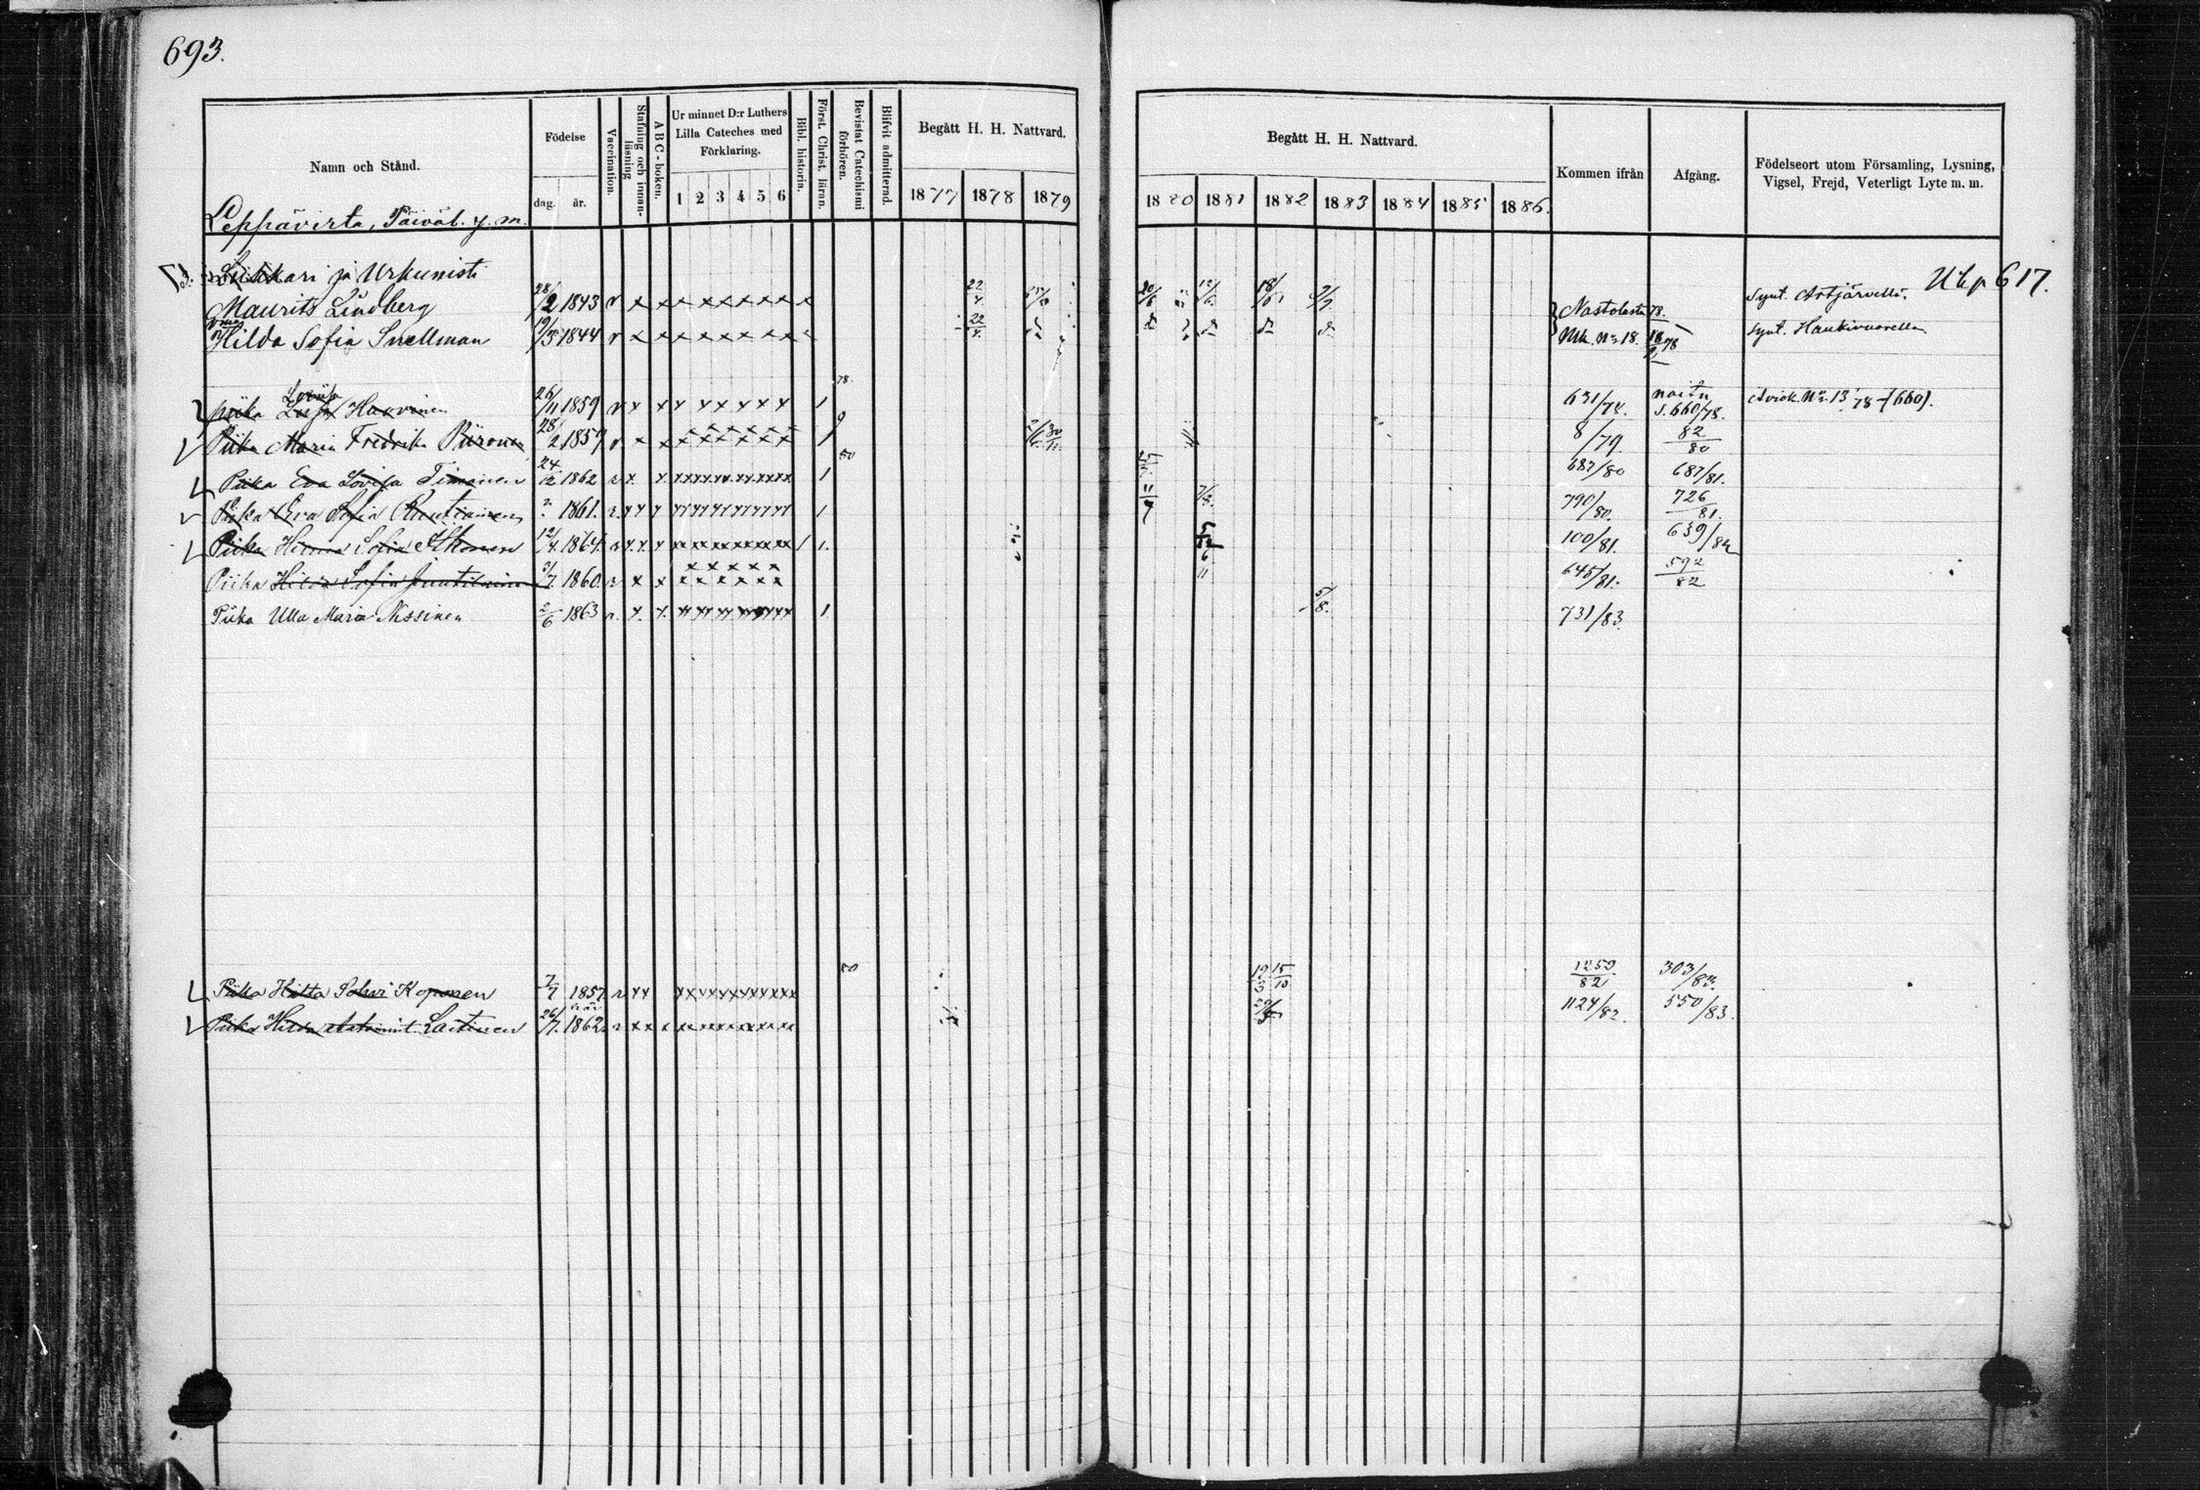 693.
Namn och Stånd.
Födelse
dag. år.
Vaccination.
Stafning och innan-läsning
A B C - boken.
Ur minnet D:r Luthers Lilla Cateches med Förklaring.
1 2 3 4 5 6
Bibl. historia.
Först. Christ. läran.
Bevistat Catechismi förhören.
Blifvit admitterad.
Begått H. H. Nattvard.
1877 1878 1879
Begått H. H. Nattvard.
1880 1881 1882 1883 1884 1885 1886.
Kommen ifrån
Afgång.
Födelseort utom Församling, Lysning, Vigsel, Frejd, Veterligt Lyte m. m.
Leppävirta, Päiväl. y. m.
Lukkari ja Urkunisti Uk p 617.
Maurits Lindberg 28/2 1843 v x x x x x x x x x x 22/4 Nastolasta 78. Synt. Artjärvellä.
Hilda Sofia Snellman 19/3 1844 v x x x x x x x x x 22/4 Mk. No 18. 18/2 78 synt. Haukivuorella
78.
piika Lovisa Huovinen 26/11 1859 v x x x x x x x x 1 631/78. naitu s. 660/78. Aviok. No 13 78 (660).
Piika Maria Fredrika Piironen 28/2 1857 v x x x x x x x x 1 30/11 8/79. 82/80
80
Piika Eva Lovisa Timonen 24/12 1862 1 687/80 687/81.
Piika Eva Sofia Rautiainen 1861. 1 11/9 7/8. 790/80. 726/81.
Piika Herma Sofia Ikonen 12/4. 1864. 1 1. 5/12 100/81. 639/82
Piika Hilda Sofia Juutilainen 3/7 1860 6/11 645/81. 592/82
Piika Ulla Maria Nissinen 2/6 1863 1 5/8. 731/83.
80
Piika Hilda Koponen 7/7 1857 19/3 15/10 1259/82 303/83.
Piika Hilda Laitinen 26/7. 1862 1124/82. 550/83.